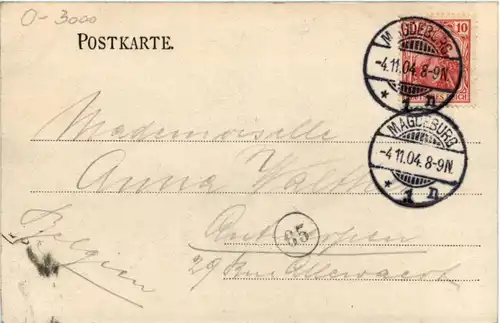 0-3000
POSTKARTE.
10
MAGDEBURG
-4.11.04.8-9N.
* 1 n
MAGDEBURG
-4.11.04.8-9N.
* 1 n
Mademoiselle
Anna
Antwerpen
85
Belgien
29 Rue